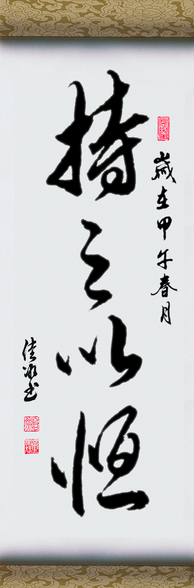 歲在甲午春月
持之以恒
佳冰书